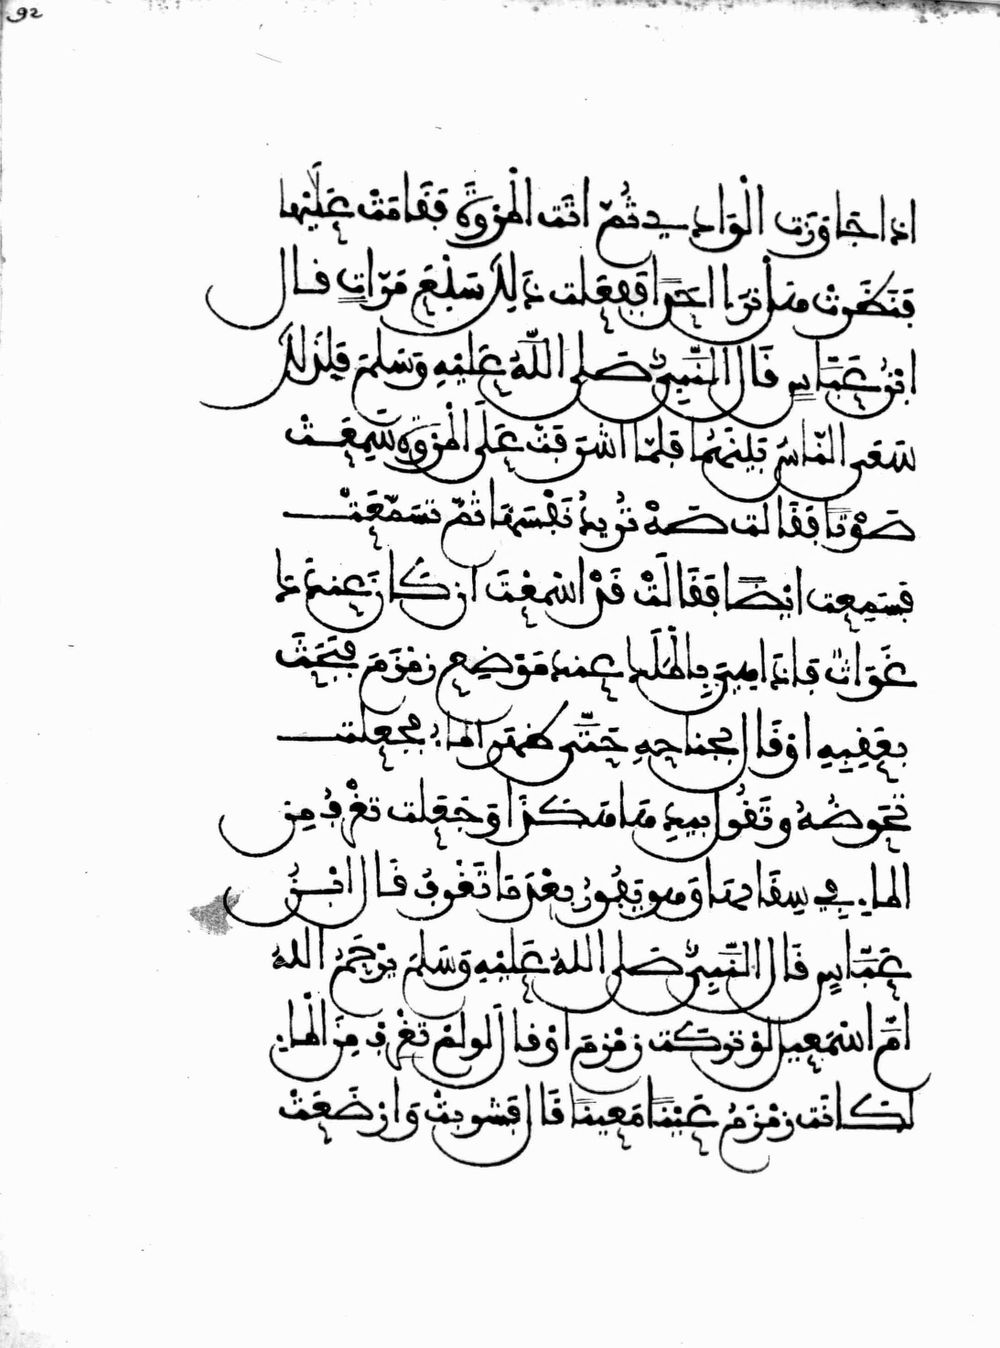 92
اذا جَاوَزَت الْوَادِي ثُمّ اتَت الْمَرْوَةَ فَقَامَتْ عَلَيْهَا
فَنَظَرَتْ هَل تَرَى احَداً فَفَعَلت ذَلِكَ سَبْعَ مَرّاتٍ قال
ابْنُ عَبَّاسٍ قَال النَّبِىُّ صَلى اللَّهُ عَلَيْهِ وَسَلمَ فَلِذَلكَ
سَعَى النّاسُ بَيْنَهُمَا فَلمّا اشْرَفَتْ عَلَى الْمَرْوَةِ سَمِعَتْ
صَوْتاً فَقَالت صَهْ تُرِيدُ نَفْسَهَا ثُمّ تَسَمّعَتْ
فسَمِعت ايْضًا فَقَالَتْ قَدْ اسْمَعْتَ ان كَان عِندَكَ
غَوَاثٌ فَاذَا هِىَ بِالْمَلَكِ عِندَ مَوْضِعِ زَمْزَمَ فَبَحَثَ
بِعَقِبِهِ اوْ قَال بجَناحِهِ حَتَّى ظَهَرَ الماءُ فجَعلت
تحَوِّضُهُ وتَقُول بيدِهَا هَكذَا وَجَعَلت تَغْرِفُ مِن
الماءِ فِي سِقَائهَا وَهو يَفُورُ بَعْدَ مَا تَغْرِفُ قَال ابْنُ
عَبّاسٍ قَال النّبِىُّ صَلى اللهُ عَلَيْهِ وَسَلمَ يَرْحَمُ اللهُ
امّ اسْمَعِيلَ لَوْ تَرَكَت زَمْزَمَ اوْ قَال لَو لَمْ تَغْرِفْ مِنَ الْمَاءِ
لَكَانَت زَمْزَمُ عَيْنًا مَعِينًا قَال فَشَرِبَتْ وَارْضَعَتْ